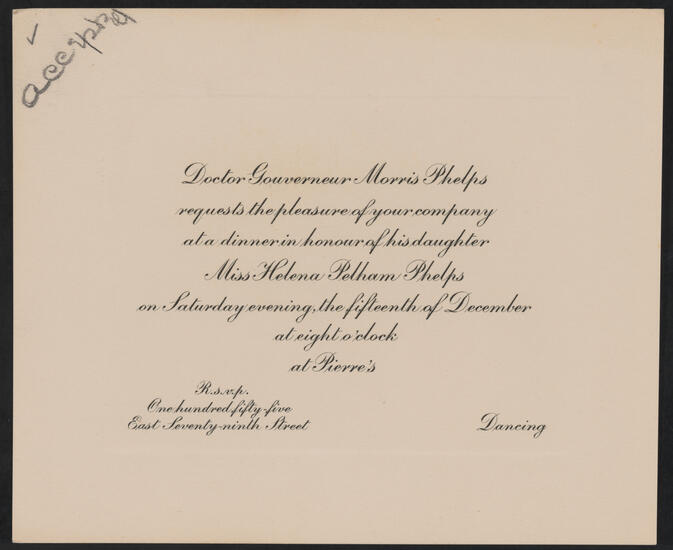 accepted
Doctor Gouverneur Morris Phelps
requests the pleasure of your company
at a dinner in honour of his daughter
Miss Helena Pelham Phelps
on Saturday evening, the fifteenth of December
at eight o'clock
at Pierre's
R.s.v.p.
One hundred fifty-five
East Seventy-ninth Street
Dancing